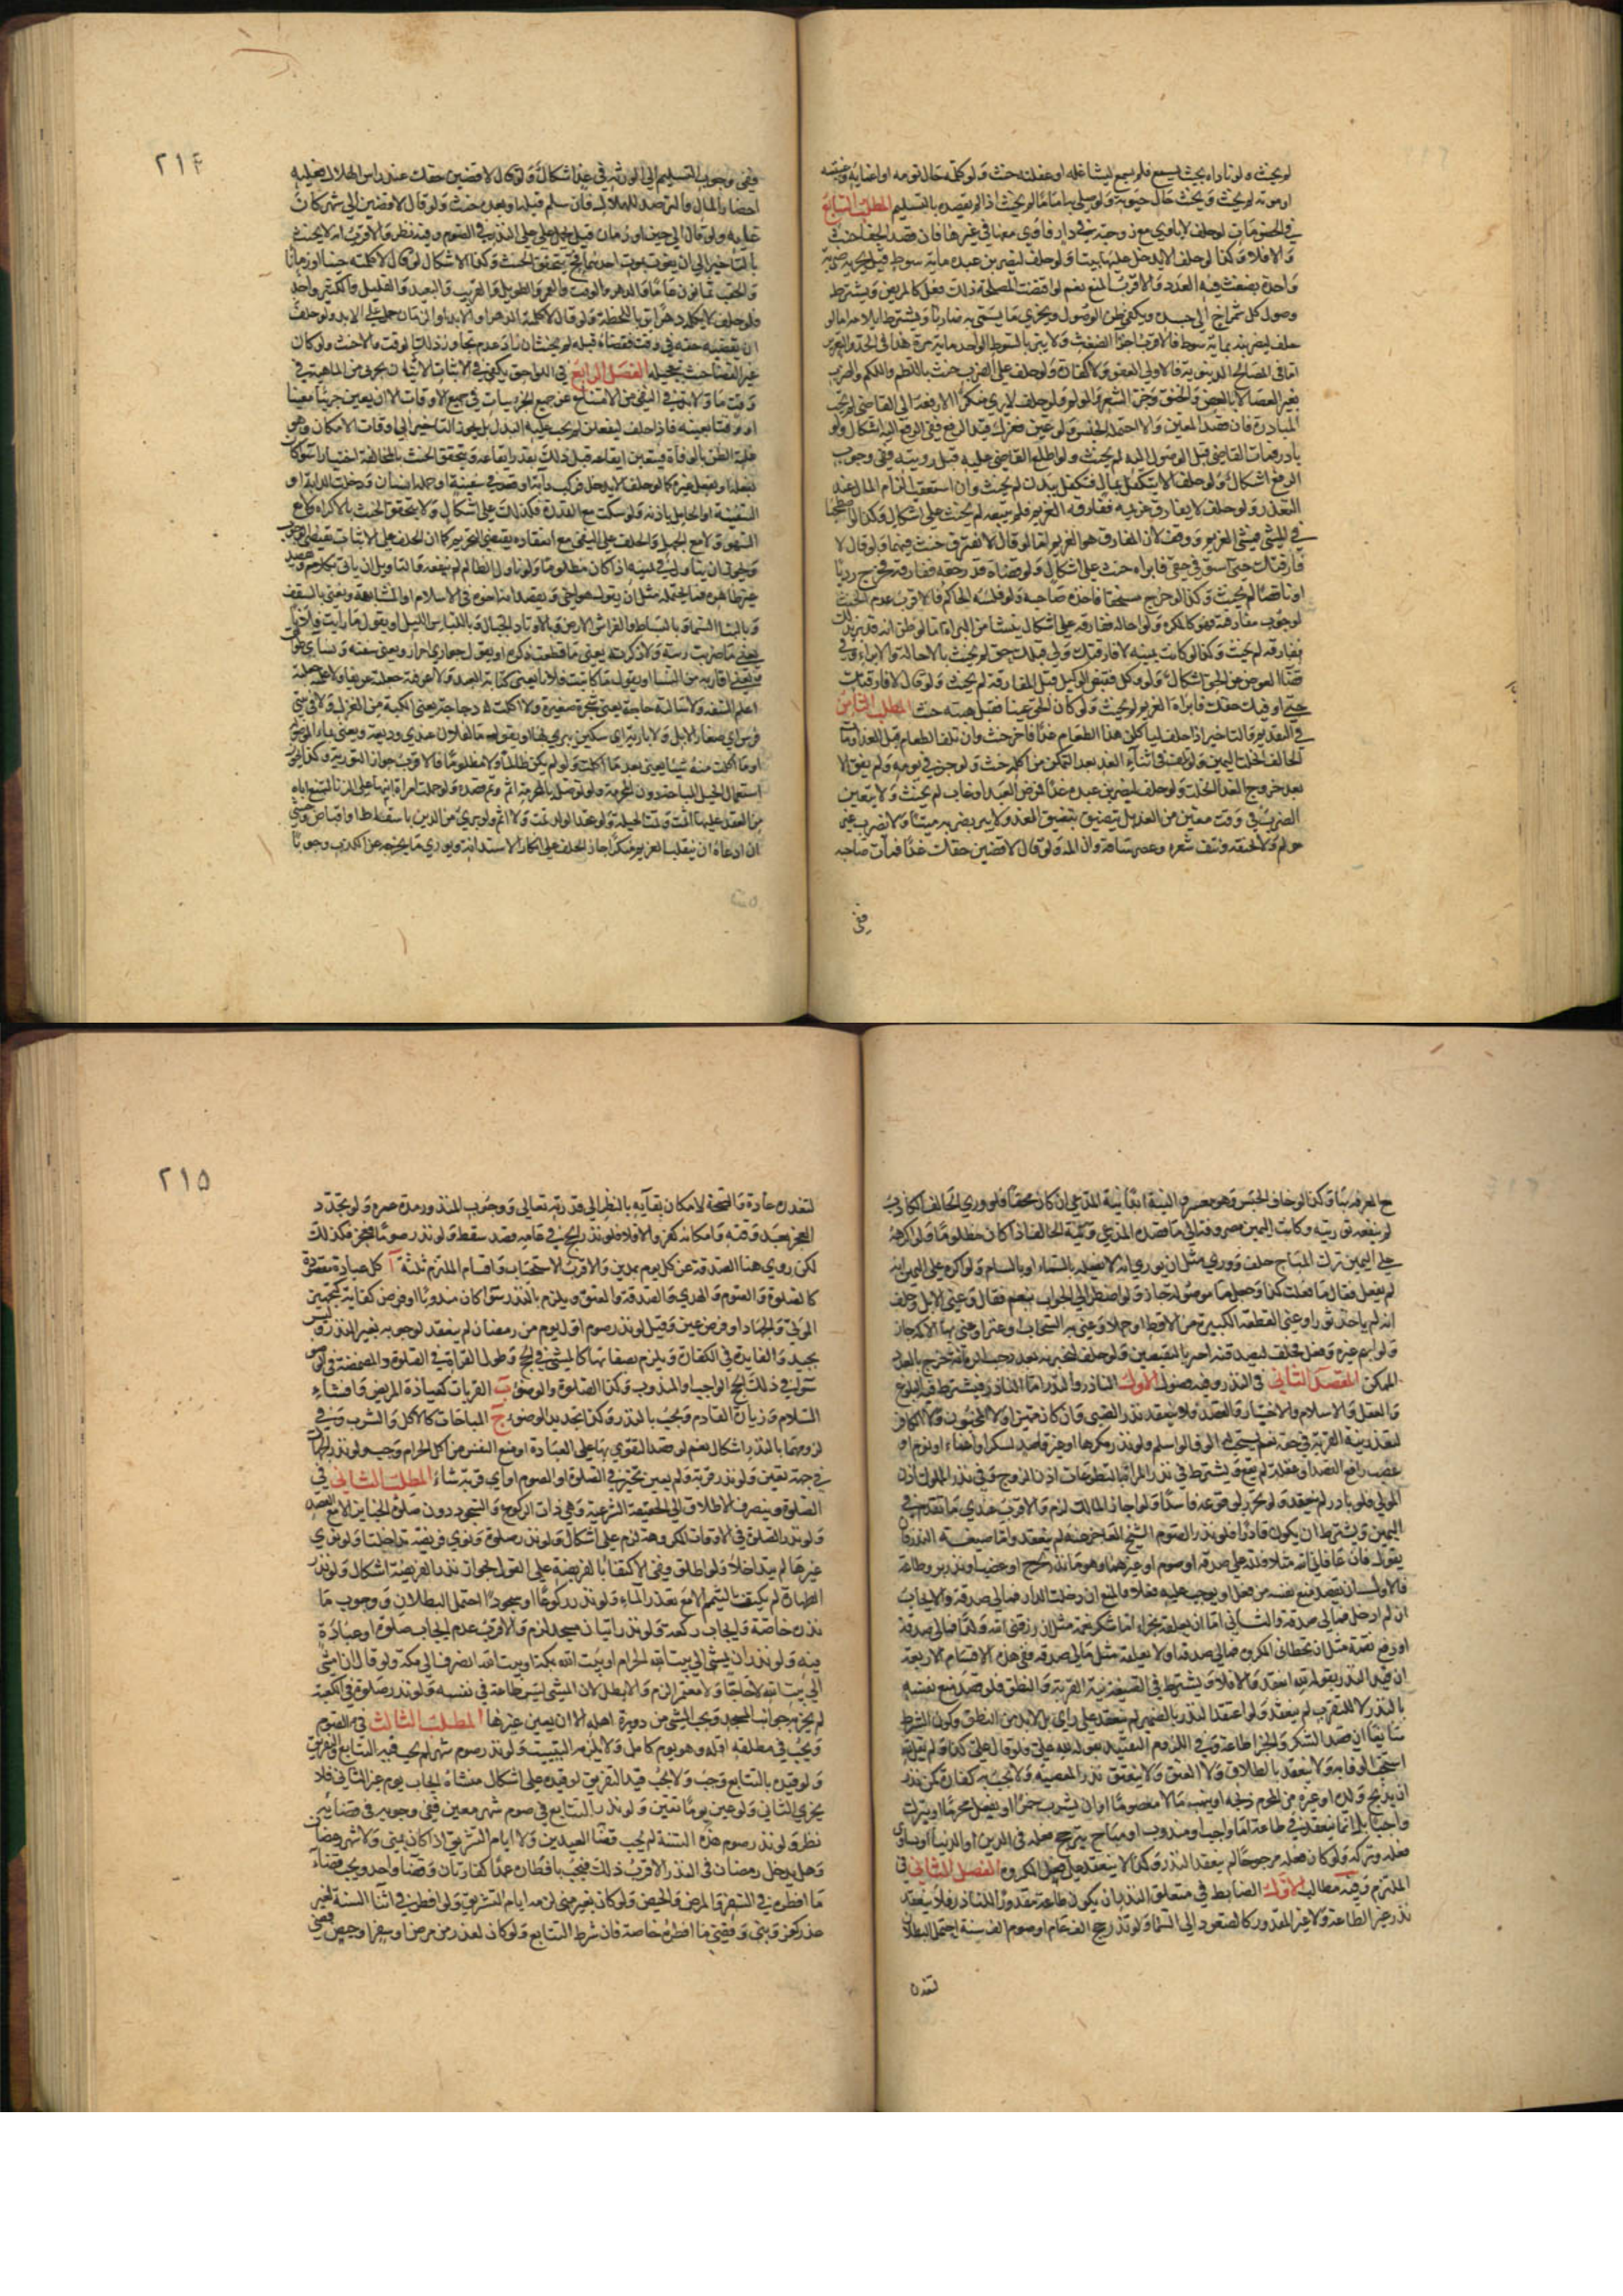 لم يحنث ولو ناداه بحيث يسمع فلم يسمع لتشاغله او غفلته حنث ولو كلمه حال نومه او اغمائه او غيبته
او موته لم يحنث ويحنث حال جنونه ولو سلم اماما لم يحنث اذا لم يقصده بالتسليم المطلب السابع
في الخصومات لو حلف لا يأوي مع زوجته في دار فأوى معها في غيرها فان قصد الجفا حنث
والا فلا وكذا لو حلف لا يدخل عليها بيتا ولو حلف ليضربن عبده مائة سوط قيل يجزيه ضربة
واحدة بضغث فيه العدد والاقرب المنع نعم لو اقتضت المصلحة ذلك فعل كالمريض ويشترط
وصول كل شمراخ الى جسده ويكفي ظن الوصول ويجزي ما يسمى به ضاربا ويشترط ايلامه اما لو
حلف ليضربنه بمائة سوط فالاقرب اجزاء الضغث ولا يبر بالسوط الواحد مائة مرة هذا في الحد والتعزير
اما في المصالح الدنيوية فالاولى العفو ولا كفارة ولو حلف على الضرب حنث باللطم واللكم والضرب
بغير العصا لا بالعض والخنق وجز الشعر ولو حلف لا يرى منكرا الا رفعه الى القاضي لم يجب
المبادرة فان قصد المعين والا احتمل الجنس ولو عين فعزل قبل الرفع ففي الرفع اليه اشكال ولو
بادر فمات القاضي قبل الوصول اليه لم يحنث ولو اطلع القاضي عليه قبل رؤيته ففي وجوب
الرفع اشكال ولو حلف لا يتكفل بمال فتكفل ببدن لم يحنث وان استعقب الزام المال عند
التعذر ولو حلف لا يفارق غريمه ففارقه الغريم فلم يتبعه لم يحنث على اشكال وكذا لو اصطحبا
في المشي فمشى الغريم ووقف لان المفارق هو الغريم اما لو قال لا نفترق حنث فيهما ولو قال لا
فارقتك حتى استوفي حقي فابراه حنث على اشكال ولو قضاه قدر حقه ففارقه فخرج رديا
او ناقصا لم يحنث وكذا لو خرج مستحقا فاخذه صاحبه ولو فلسه الحاكم فالاقرب عدم الحنث
لوجوب مفارقته فهو كالمكره ولو احاله ففارقه على اشكال ينشأ من البراءة اما لو ظن انه قد بر بذلك
ففارقه لم يحنث وكذا لو كانت يمينه لا فارقتك ولي قبلك حق لم يحنث بالاحالة والابراء وفي
قضاء العوض عن الحق اشكال ولو وكل فقبض الوكيل قبل المفارقة لم يحنث ولو قال لا فارقتك
حتى اوفيك حقك فابراه الغريم لم يحنث ولو كان الحق عينا فقبل هبته حنث المطلب الثامن
في التقديم والتاخير اذا حلف لياكلن هذا الطعام غدا فاخر حنث وان تلف الطعام قبل الغد او مات
الحالف انحلت اليمين ولو تلف في اثناء الغد بعد التمكن من اكله حنث ولو جن في يومه ولم يفق الا
بعد خروج الغد انحلت ولو حلف ليضربن عبده غدا فمرض العبد او غاب لم يحنث ولا يتعين
الضرب في وقت معين من الغد بل يتضيق بتضيق الغد ولا يبر بضربه ميتا ولا بضرب غير
مولم ولا بخنقه ونتف شعره وعصر ساقه وان المه ولو قال لاقضين حقك غدا فمات صاحبه
ففي
۲۱۴
ففي وجوب التسليم الى الورثة في غد اشكال ولو قال لاقضين حقك عند راس الهلال فعليه
احضار المال والترصد للهلال فان سلم قبله او بعده حنث ولو قال لاقضين الى شهر كان
غاية ولو قال الى حين او زمان قيل يحمل على حمل النذر في الصوم وفيه نظر والاقرب انه لا يحنث
بالتاخير الى ان يفوت بموت احدهما فح يتحقق الحنث وكذا الاشكال لو قال لا كلمته حينا او زمانا
والحقب ثمانون عاما والدهر والوقت والعمر والطويل والقريب والبعيد والقليل والكثير واحد
فلو حلف لا يكلمه دهرا بر باللحظة ولو قال لا كلمته الدهر او الابد او الزمان حمل على الابد ولو حلف
ان يقضيه حقه في وقت فقضاه قبله لم يحنث ان اراد عدم تجاوز ذلك الوقت والا حنث ولو كان
غير القضاء حنث بتعجيله الفصل الرابع في اللواحق يكفي في الاثبات الاتيان بجزئي من الماهية في
وقت ما ولا بد في النفي من الامتناع عن جميع الجزئيات في جميع الاوقات الا ان يعين جزئيا معينا
او وقتا بعينه فاذا حلف ليفعلن لم يجب عليه البدار بل يجوز التاخير الى اوقات الامكان وهو
غلبة الظن بالوفاة فيتعين ايقاعه قبل ذلك بقدر ايقاعه ويتحقق الحنث بالمخالفة اختيارا سواء كان
بفعله او بفعل غيره كما لو حلف لا يدخل فركب دابة او قعد في سفينة او حمله انسان ودخلت الدابة او
السفينة او الحامل باذنه ولو سكت مع القدرة فكذلك على اشكال ولا يتحقق الحنث بالاكراه ولا مع
السهو ولا مع الجهل والحلف على النفي مع انعقاده يقتضي التحريم كما ان الحلف على الاثبات يقتضي الوجوب
ويجوز ان يتأول في يمينه اذا كان مظلوما ولو تاول الظالم لم ينفعه والتاويل ان ياتي بكلام ويقصد
غير ظاهره مما يحتمله مثل ان يقول هو اخي ويقصد انه اخوه في الاسلام او المشابهة ويعني بالسقف
وبالبناء السماء وبالبساط والفراش الارض وبالاوتاد الجبال وباللباس الليل او يقول ما رايت فلانا
يعني ما ضربت ريته ولا ذكرته يعني ما قطعت ذكره او يقول جواري احرار ويعني سفنه ونسائي طوالق
ويعني اقاربه من النساء او يقول ما كاتبت فلانا يعني كتابة العبد ولا عرفته جعلته عريفا ولا اعلمته
اعلم الشفه ولا سالته حاجة يعني شجرة صغيرة ولا اكلت له دجاجة يعني الكبة من الغزل ولا في بيتي
فرش اي صغار الابل ولا بارية اي سكين يبري بها او يقول ما لفلان عندي وديعة ويعني بما الموصولة
او ما اكلت منه شيئا يعني بعد ما اكلت ولو لم يكن ظالما ولا مظلوما فالاقرب جواز التورية وكذا يجوز
استعمال الحيل المباحة دون المحرمة ولو توصل بالمحرمة اثم وتم قصده ولو حملت امراة ابنها على الزنا لتمنع اباه
من العقد عليها اثمت وتمت الحيلة ولو عقد الولد تمت ولا اثم ولو بري من الدين باسقاط او اقباض وخشي
ان ادعاه ان ينقلب الغريم منكرا جاز الحلف على انكار الاستدانة ويوري ما يخرجه عن الكذب وجوبا
مع المعرفة بها وكذا لو خاف الحبس وهو معسر والنية ابدا نية المدعي ان كان محقا فلو ورى الحالف الكاذب
لم ينفعه توريته وكانت اليمين مصروفة الى ما قصده المدعي ونية الحالف اذا كان مظلوما ولو اكرهه
على اليمين بترك المباح حلف وورى مثل ان يوري انه لا يفعله بالسماء او بالشام ولو اكره على اليمين انه
لم يفعل فقال ما فعلت كذا وجعل ما موصولة جاز ولو اضطر الى الجواب بنعم فقال وعنى الابل وحلف
انه لم ياخذ ثورا وعنى القطعة الكبيرة من الاقط او جملا وعنى به السحاب او عنزا وعنى بها الاكمة جاز
ولو اتهم غيره في فعل فحلف ليصدقنه اخبر بالنقيضين ولو حلف ليخبرنه بعدد حب الرمانة خرج بالعدد
الممكن المقصد الثاني في النذر وفيه فصول الاول الناذر والنذر اما الناذر فيشترط فيه البلوغ
والعقل والاسلام والاختيار والقصد فلا ينعقد نذر الصبي وان كان مميزا ولا المجنون ولا الكافر
لتعذر نية القربة في حقه نعم يستحب له الوفا لو اسلم ولو نذر مكرها او غير قاصد لسكر او اغماء او نوم او
غضب رافع القصد او غفلة لم يقع ويشترط في نذر المراة بالتطوعات اذن الزوج وفي نذر المملوك اذن
المولى فلو بادر لم ينعقد ولو تحرر لوقوعه فاسدا ولو اجاز المالك لزم والاقرب عندي ما تقدم في
اليمين ويشترط ان يكون قادرا فلو نذر الصوم الشيخ العاجز عنه لم ينعقد واما صيغة النذر فان
يقول ان عافاني الله مثلا فلله علي صدقة او صوم او غيرهما وهو اما نذر لجاج وغضب او نذر بر وطاعة
فالاول ان يقصد منع نفسه عن فعل او يوجب عليه فعلا فالمنع ان دخلت الدار فمالي صدقة والايجاب
ان لم ادخل فمالي صدقة والثاني اما ان يعلقه بجزاء اما شكر نعمة مثل ان رزقني الله ولدا فمالي صدقة
او دفع نقمة مثل ان تخطاني المكروه فمالي صدقة او لا يعلقه مثل مالي صدقة ففي هذه الاقسام الاربعة
ان قيد النذر بقوله لله انعقد والا فلا ويشترط في الصيغة نية القربة والنطق فلو قصد منع نفسه
بالنذر لا التقرب لم ينعقد ولو اعتقد النذر بالضمير لم ينعقد على راي بل لا بد من النطق وكون الشرط
سائغا ان قصد الشكر والجزاء طاعة وفي اللزوم التقييد بقوله لله علي فلو قال علي كذا ولم يقل لله
استحب الوفا به ولا ينعقد بالطلاق ولا العتق ولا ينعقد نذر المعصية ولا يجب به كفارة كمن نذر
ان يذبح ولده او غيره من المحرم ذبحه او ينهب مالا معصوما او ان يشرب خمرا او يفعل محرما او يترك
واجبا بل انما ينعقد في طاعة اما واجب او مندوب او مباح يترجح فعله في الدين او الدنيا او يساوي
فعله وتركه ولو كان فعله مرجوحا لم ينعقد النذر وكذا لا ينعقد على فعل المكروه الفصل الثاني في
الملتزم وفيه مطالب الاول الضابط في متعلق النذر ان يكون طاعة مقدورا للناذر فلا ينعقد
نذر غير الطاعة ولا غير المقدور كالصعود الى السماء ولو نذر حج الف عام او صوم الف سنة احتمل البطلان
لتعذره
۲۱۵
لتعذره عادة والصحة لامكان بقائه بالنظر الى قدرة الله تعالى ووجوب المنذور مدة عمره ولو تجدد
العجز بعد وقته وامكانه كفر والا فلا فلو نذر الحج في عامه فصد سقط ولو نذر صوما فعجز فكذلك
لكن روي هنا الصدقة عن كل يوم بمدين والاقرب الاستحباب واقسام الملتزم ثلثة آ كل عبادة مقصودة
كالصلوة والصوم والهدي والصدقة والعتق ويلزم بالنذر سواء كان مندوبا او فرض كفاية كتجهيز
الموتى والجهاد او فرض عين وقيل لو نذر صوم اول يوم من رمضان لم ينعقد لوجوبه بغير النذر وليس
بجيد والفايدة في الكفارة ويلزم بصفاتها كالمشي في الحج وطول القراة في الصلوة والمضمضة في الوضوء
سواء في ذلك الحج الواجب او المندوب وكذا الصلوة والوضوء ب القربات كعيادة المريض وافشاء
السلام وزيارة القادم ويجب بالنذر وكذا تجديد الوضوء ج المباحات كالاكل والشرب وفي
لزومها بالنذر اشكال نعم لو قصد التقوي بها على العبادة او منع النفس عن اكل الحرام وجب ولو نذر الجهاد
في جهة تعين ولو نذر قربة ولم يعين تخير في الصلوة او الصوم او اي قربة شاء المطلب الثاني في
الصلوة وينصرف الاطلاق الى الحقيقة الشرعية وهي ذات الركوع والسجود دون صلوة الجنازة الا مع القصد
ولو نذر الصلوة في الاوقات المكروهة لزم على اشكال ولو نذر صلوة ونوى فريضة تداخلتا ولو نوى
غيرها لم يتداخلا ولو اطلق ففي الاكتفاء بالفريضة على القول بجواز نذر الفريضة اشكال ولو نذر
الطهارة لم يكتف بالتيمم الا مع تعذر الماء ولو نذر ركوعا او سجودا احتمل البطلان ووجوب ما
نذره خاصة وايجاب ركعة ولو نذر اتيان مسجد لزم والاقرب عدم ايجاب صلوة او عبادة
فيه ولو نذر ان يمشي الى بيت الله الحرام او بيت الله بمكة او بيت الله انصرف الى مكة ولو قال ان امشي
الى بيت الله لا حاجا ولا معتمرا لزم والا بطل لان المشي ليس طاعة في نفسه ولو نذر صلوة في الكعبة
لم يجزئه جوانب المسجد ويجب المشي من دويرة اهله الا ان يعين غيرها المطلب الثالث في الصوم
ويجب في مطلقه اقله وهو يوم كامل ولا يلزمه التبييت ولو نذر صوم شهر لم يجب فيه التتابع والتفريق
ولو قيده بالتتابع وجب ولا يجب قيد التفريق لو قيده على اشكال منشاه ايجاب يوم غير الثاني فلا
يجزي الثاني ولو عين يوما تعين ولو نذر التتابع في صوم شهر معين ففي وجوبه في قضائه
نظر ولو نذر صوم هذه السنة لم يجب قضا العيدين ولا ايام التشريق اذا كان بمنى ولا شهر رمضان
وهل يدخل رمضان في النذر الاقرب ذلك فيجب بافطاره عمدا كفارتان وقضاء واحد ويجب قضاء
ما افطره في السفر والمرض والحيض ولو كان بغير منى لزمه ايام التشريق ولو افطر في اثناء السنة لغير
عذر كفر وبنى وقضى ما افطره خاصة فان شرط التتابع ولو كان لعذر من مرض او سفر او حيض قضى